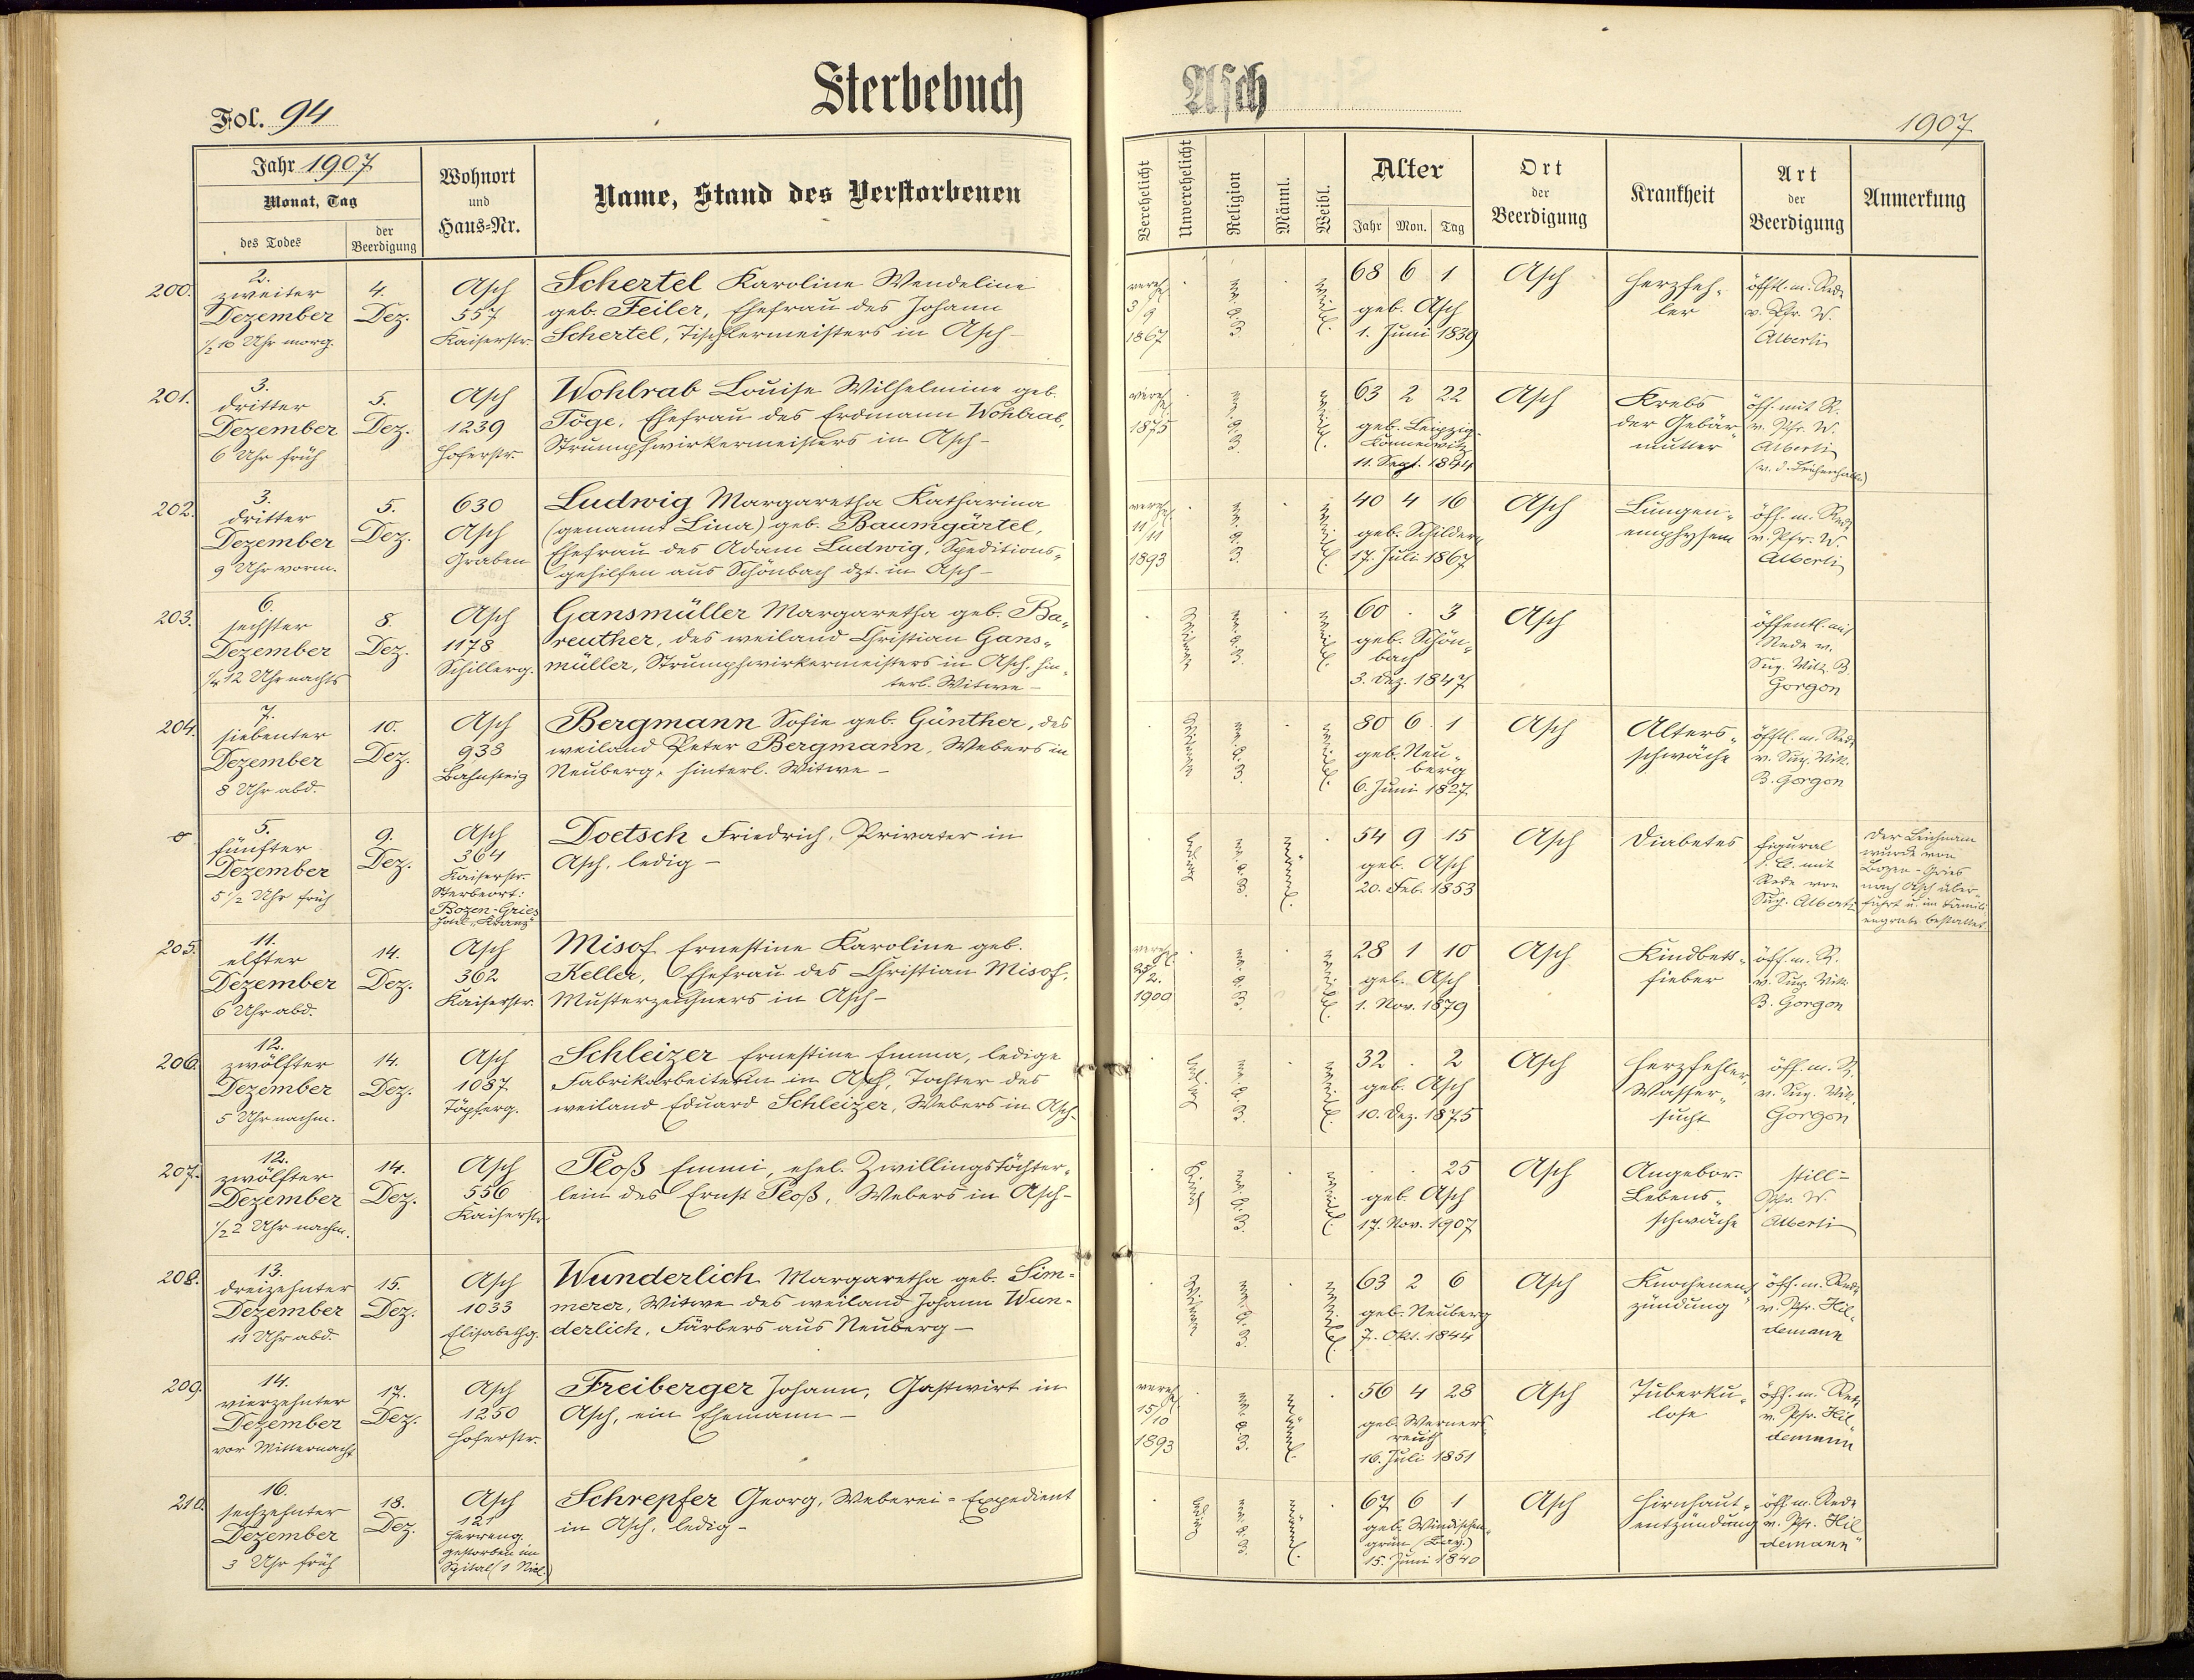 Sterbebuch
Asch
Fol. 94
1907
Jahr 1907
Monat, Tag
des Todes
der Beerdigung
Wohnort
und
Haus-Nr.
Name, Stand des Verstorbenen
Verehelicht
Unverehelicht
Religion
Männl.
Weibl.
Alter
Jahr Mon. Tag
Ort
der
Beerdigung
Krankheit
Art
der
Beerdigung
Anmerkung
200.
2.
zweiter
Dezember
½10 Uhr morg.
4.
Dez.
Asch
557
Kaiserstr.
Schertel Karoline Wendeline
geb. Feiler, Ehefrau des Johann
Schertel, Tischlermeisters in Asch –
vereh.
3/9
1867
ev. A. B.
weibl.
68 6 1
geb. Asch
1. Juni 1839
Asch
Herzfeh-
ler
öfftl. m. Rede
v. Pfr. W.
Alberti
201.
3.
dritter
Dezember
6 Uhr früh
5.
Dez.
Asch
1239
Hoferstr.
Wohlrab Louise Wilhelmine geb.
Töge, Ehefrau des Erdmann Wohlrab,
Strumpfwirkermeisters in Asch –
vereh.
1875
ev. A. B.
weibl.
63 2 22
geb. Leipzig-
Konnewitz
11. Sept. 1844
Asch
Krebs
der Gebär-
mutter
öff. mit R.
v. Pfr. W.
Alberti
(v. d. Leichenhalle)
202.
3.
dritter
Dezember
9 Uhr vorm.
5.
Dez.
630
Asch
Graben
Ludwig Margaretha Katharina
(genannt Lina) geb. Baumgärtel,
Ehefrau des Adam Ludwig, Speditions-
gehilfen aus Schönbach dzt. in Asch –
vereh.
11/11
1893
ev. A. B.
weibl.
40 4 16
geb. Schildern
17. Juli 1867
Asch
Lungen-
emphysem
öff. m. Rede
v. Pfr. W.
Alberti
203.
6.
sechster
Dezember
¼12 Uhr nachts
8.
Dez.
Asch
1178
Schillerg.
Gansmüller Margaretha geb. Ba-
reuther, des weiland Christian Gans-
müller, Strumpfwirkermeisters in Asch, hin-
terl. Witwe –
Witwe
ev. A. B.
weibl.
60 · 3
geb. Schön-
bach
3. Dez. 1847
Asch
öffentl. mit
Rede v.
Sup. Vik. B.
Gorgon
204.
7.
siebenter
Dezember
8 Uhr abd.
10.
Dez.
Asch
938
Bahnsteig
Bergmann Sofie geb. Günther, des
weiland Peter Bergmann, Webers in
Neuberg, hinterl. Witwe –
Witwe
ev. A. B.
weibl.
80 6 1
geb. Neu-
berg
6. Juni 1827
Asch
Alters-
schwäche
öfftl. m. Rede
v. Sup. Vik.
B. Gorgon
5.
fünfter
Dezember
5½ Uhr früh
9.
Dez.
Asch
364
Kaiserstr.
Sterbeort:
Bozen-Gries
Doetsch Friedrich, Privater in
Asch, ledig –
ledig
ev. A. B.
männl.
54 9 15
geb. Asch
20. Feb. 1853
Asch
Diabetes
figural
mit
Rede von
Sup. Alberti
Der Leichnam
wurde von
Bozen-Gries
nach Asch über-
führt u. im Famili-
engrabe bestattet.
205.
11.
elfter
Dezember
6 Uhr abd.
14.
Dez.
Asch
362
Kaiserstr.
Misof Ernestine Karoline geb.
Keller, Ehefrau des Christian Misof,
Musterzeichners in Asch –
verehl.
25/2.
1900
ev. A. B.
weibl.
28 1 10
geb. Asch
1. Nov. 1879
Asch
Kindbett-
fieber
öff. m. R.
v. Sup. Vik.
B. Gorgon
206.
12.
zwölfter
Dezember
5 Uhr nachm.
14.
Dez.
Asch
1087
Töpferg.
Schleizer Ernestine Emma, ledige
Fabrikarbeiterin in Asch, Tochter des
weiland Eduard Schleizer, Webers in Asch.
ledig
ev. A. B.
weibl.
32 · 2
geb. Asch
10. Dez. 1875
Asch
Herzfehler,
Wasser-
sucht
öff. m. R.
v. Sup. Vik.
Gorgon
207.
12.
zwölfter
Dezember
½2 Uhr nachm.
14.
Dez.
Asch
556
Kaiserstr.
Ploß Emmi, ehel. Zwillingstöchter-
lein des Ernst Ploß, Webers in Asch –
Kind
ev. A. B.
weibl.
· · 25
geb. Asch
17. Nov. 1907
Asch
Angebor.
Lebens-
schwäche
still –
Pfr. W.
Alberti
208.
13.
dreizehnter
Dezember
11 Uhr abd.
15.
Dez.
Asch
1033
Elisabethg.
Wunderlich Margaretha geb. Sim-
merer, Witwe des weiland Johann Wun-
derlich, Färbers aus Neuberg –
Witwe
ev. A. B.
weibl.
63 2 6
geb. Neuberg
7. Okt. 1844
Asch
Knochenent-
zündung
öff. m. Rede
v. Pfr. Hil-
demann
209.
14.
vierzehnter
Dezember
vor Mitternacht
17.
Dez.
Asch
1250
Hoferstr.
Freiberger Johann, Gastwirt in
Asch, ein Ehemann –
vereh.
15/10
1893
ev. A. B.
männl.
56 4 28
geb. Werners-
reuth
16. Juli 1851
Asch
Tuberku-
lose
öff. m. Rede
v. Pfr. Hil-
demann
210.
16.
sechzehnter
Dezember
3 Uhr früh
18.
Dez.
Asch
121
Herreng.
gestorben im
Spital
Schrepfer Georg, Weberei-Expedient
in Asch, ledig –
ledig
ev. A. B.
männl.
67 6 1
geb. Windischen-
grün (Bay.)
15. Juni 1840
Asch
Hirnhaut-
entzündung
öff. m. Rede
v. Pfr. Hil-
demann